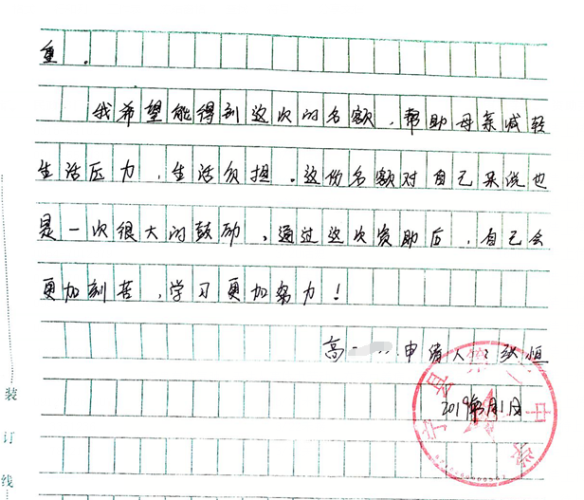 重.
我希望能得到这次的名额,帮助母亲减轻
生活压力,生活负担.这份名额对自己来说也
是一次很大的鼓励,通过这次资助后,自己会
更加刻苦,学习更加努力!
高一 申请人:
2019年3月1日
宁县第二中学
装
订
线